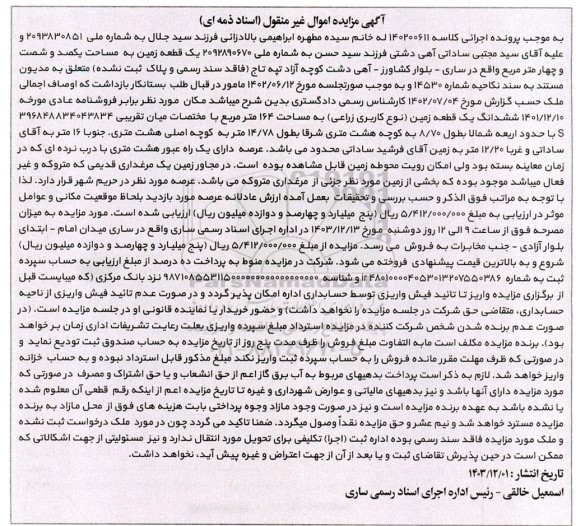 آگهی مزایده اموال غیر منقول (اسناد ذمه ای)
به موجب پرونده اجرائی کلاسه ۱۴۰۲۰۰۶۱۱ له خانم سیده مطهره ابراهیمی بالادزائی فرزند سید جلال به شماره ملی ۲۰۹۳۸۳۰۸۵۱ و
علیه آقای سید مجتبی ساداتی آهی دشتی فرزند سید حسن به شماره ملی ۲۰۹۲۸۹۰۶۷۰ یک قطعه زمین به مساحت یکصد و شصت
و چهار متر مربع واقع در ساری - بلوار کشاورز - آهی دشت کوچه آزاد تپه تاج (فاقد سند رسمی و پلاک ثبت نشده) متعلق به مدیون
مستند به سند نکاحیه شماره ۱۴۵۳۰ و به موجب صورتجلسه مورخ ۱۴۰۲/۰۶/۱۲ مامور در قبال طلب بستانکار بازداشت که اوصاف اجمالی
ملک حسب گزارش مورخ ۱۴۰۲/۰۷/۰۴ کارشناس رسمی دادگستری بدین شرح میباشد مکان مورد نظر برابر فروشنامه عادی مورخه
۱۴۰۱/۱۲/۱۰ ششدانگ یک قطعه زمین (نوع کاربری زراعی) به مساحت ۱۶۴ متر مربع با مختصات میان تقریبی ۳۹۶۸۴۸۸۳۴۰۴۳۸۳۴
S با حدود اربعه شمالا بطول ۸/۷۰ به کوچه هشت متری شرقا بطول ۱۴/۷۸ متر به کوچه اصلی هشت متری. جنوبا ۱۶ متر به آقای
ساداتی و غربا ۱۲/۲۰ متر به زمین آقای فرشید ساداتی محدود می باشد. عرصه دارای یک راه عبور هشت متری با درب نرده ای که در
زمان معاینه بسته بود ولی امکان رویت محوطه زمین قابل مشاهده بوده است. در مجاور زمین یک مرغداری قدیمی که متروکه و غیر
فعال میباشد موجود بوده که بخشی از زمین مورد نظر جزئی از مرغداری متروکه می باشد. عرصه مورد نظر در حریم شهر قرار دارد. لذا
با توجه به مراتب فوق الذکر و حسب بررسی و تحقیقات بعمل آمده ارزش عادلانه عرصه مورد بازدید بلحاظ موقعیت مکانی و عوامل
موثر در ارزیابی به مبلغ ۵/۴۱۲/۰۰۰/۰۰۰ ریال (پنج میلیارد و چهارصد و دوازده میلیون ریال) ارزیابی شده است. مورد مزایده به میزان
مصرحه فوق از ساعت ۹ الی ۱۲ روز دوشنبه مورخ ۱۴۰۳/۱۲/۱۳ در اداره اجرای اسناد رسمی ساری واقع در ساری میدان امام - ابتدای
بلوار آزادی - جنب مخابرات به فروش می رسد. مزایده از مبلغ ۵/۴۱۲/۰۰۰/۰۰۰ ریال (پنج میلیارد و چهارصد و دوازده میلیون ریال)
شروع و به بالاترین قیمت پیشنهادی فروخته می شود. شرکت در مزایده منوط به پرداخت ده درصد از مبلغ ارزیابی به حساب سپرده
ثبت به شماره و شناسه نزد بانک مرکزی (که میبایست قبل
از برگزاری مزایده واریز تا تائید فیش واریزی توسط حسابداری اداره امکان پذیر گردد و در صورت عدم تائید فیش واریزی از ناحیه
حسابداری، متقاضی حق شرکت در جلسه مزایده را نخواهد داشت) و حضور خریدار یا نماینده قانونی او در جلسه مزایده است. (در
صورت عدم برنده شدن شخص شرکت کننده در مزایده استرداد مبلغ سپرده واریزی به علت رعایت تشریفات اداری زمان بر خواهد
بود). برنده مزایده مکلف است مابه التفاوت مبلغ فروش را ظرف مدت پنج روز از تاریخ مزایده به حساب صندوق ثبت تودیع نماید و
در صورتی که ظرف مهلت مقرر مانده فروش را به حساب سپرده ثبت واریز نکند مبلغ مذکور قابل استرداد نبوده و به حساب خزانه
واریز خواهد شد. لازم به ذکر است پرداخت بدهیهای مربوط به آب برق گاز اعم از حق انشعاب و یا حق اشتراک و مصرف در صورتی که
مورد مزایده دارای آنها باشد و نیز بدهیهای مالیاتی و عوارض شهرداری و غیره تا تاریخ مزایده اعم از اینکه رقم قطعی آن معلوم شده
یا نشده باشد به عهده برنده مزایده است و نیز در صورت وجود مازاد وجوه پرداختی بابت هزینه های فوق از محل مازاد به برنده
مزایده مسترد خواهد شد و نیم عشر و حق مزایده نقداً وصول میگردد. ضمنا تاکید می گردد چون در مورد ملک درخواست ثبت نشده
و ملک مورد مزایده فاقد سند رسمی بوده اداره ثبت (اجرا) تکلیفی برای تحویل مورد انتقال ندارد و نیز مسئولیتی از جهت اشکالاتی که
ممکن است در حین پذیرش تقاضای ثبت و یا بعد از آن از جهت اعتراض و غیره پیش آید، نخواهد داشت.
تاریخ انتشار : ۱۴۰۳/۱۲/۰۱
اسمعیل خالقی - رئیس اداره اجرای اسناد رسمی ساری